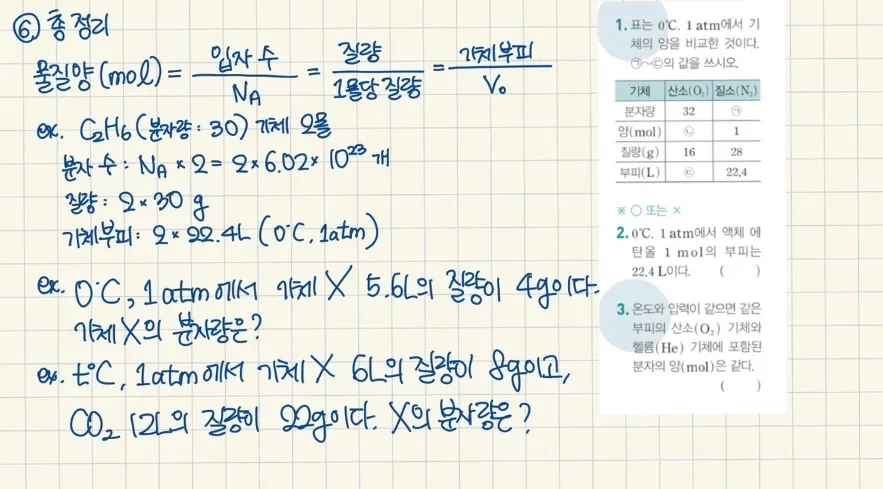 ⑥ 총 정리
물질양(mol) = 입자 수/N_A = 질량/1몰당 질량 = 기체부피/V₀
ex. C₂H₆(분자량: 30) 기체 2몰
분자 수: N_A × 2 = 2 × 6.02 × 10²³ 개
질량: 2 × 30 g
기체부피: 2 × 22.4L (0℃, 1atm)
ex. 0℃, 1atm에서 기체 X 5.6L의 질량이 4g이다.
기체 X의 분자량은?
ex. t℃, 1atm에서 기체 X 6L의 질량이 8g이고,
CO₂ 12L의 질량이 22g이다. X의 분자량은?
1. 표는 0℃, 1 atm에서 기
체의 양을 비교한 것이다.
㉠~㉢의 값을 쓰시오.
기체 산소(O₂) 질소(N₂)
분자량 32 ㉠
양(mol) ㉡ 1
질량(g) 16 28
부피(L) ㉢ 22.4
※ ○ 또는 ×
2. 0℃, 1 atm에서 액체 에
탄올 1 mol의 부피는
22.4 L이다. ( )
3. 온도와 압력이 같으면 같은
부피의 산소(O₂) 기체와
헬륨(He) 기체에 포함된
분자의 양(mol)은 같다.
( )